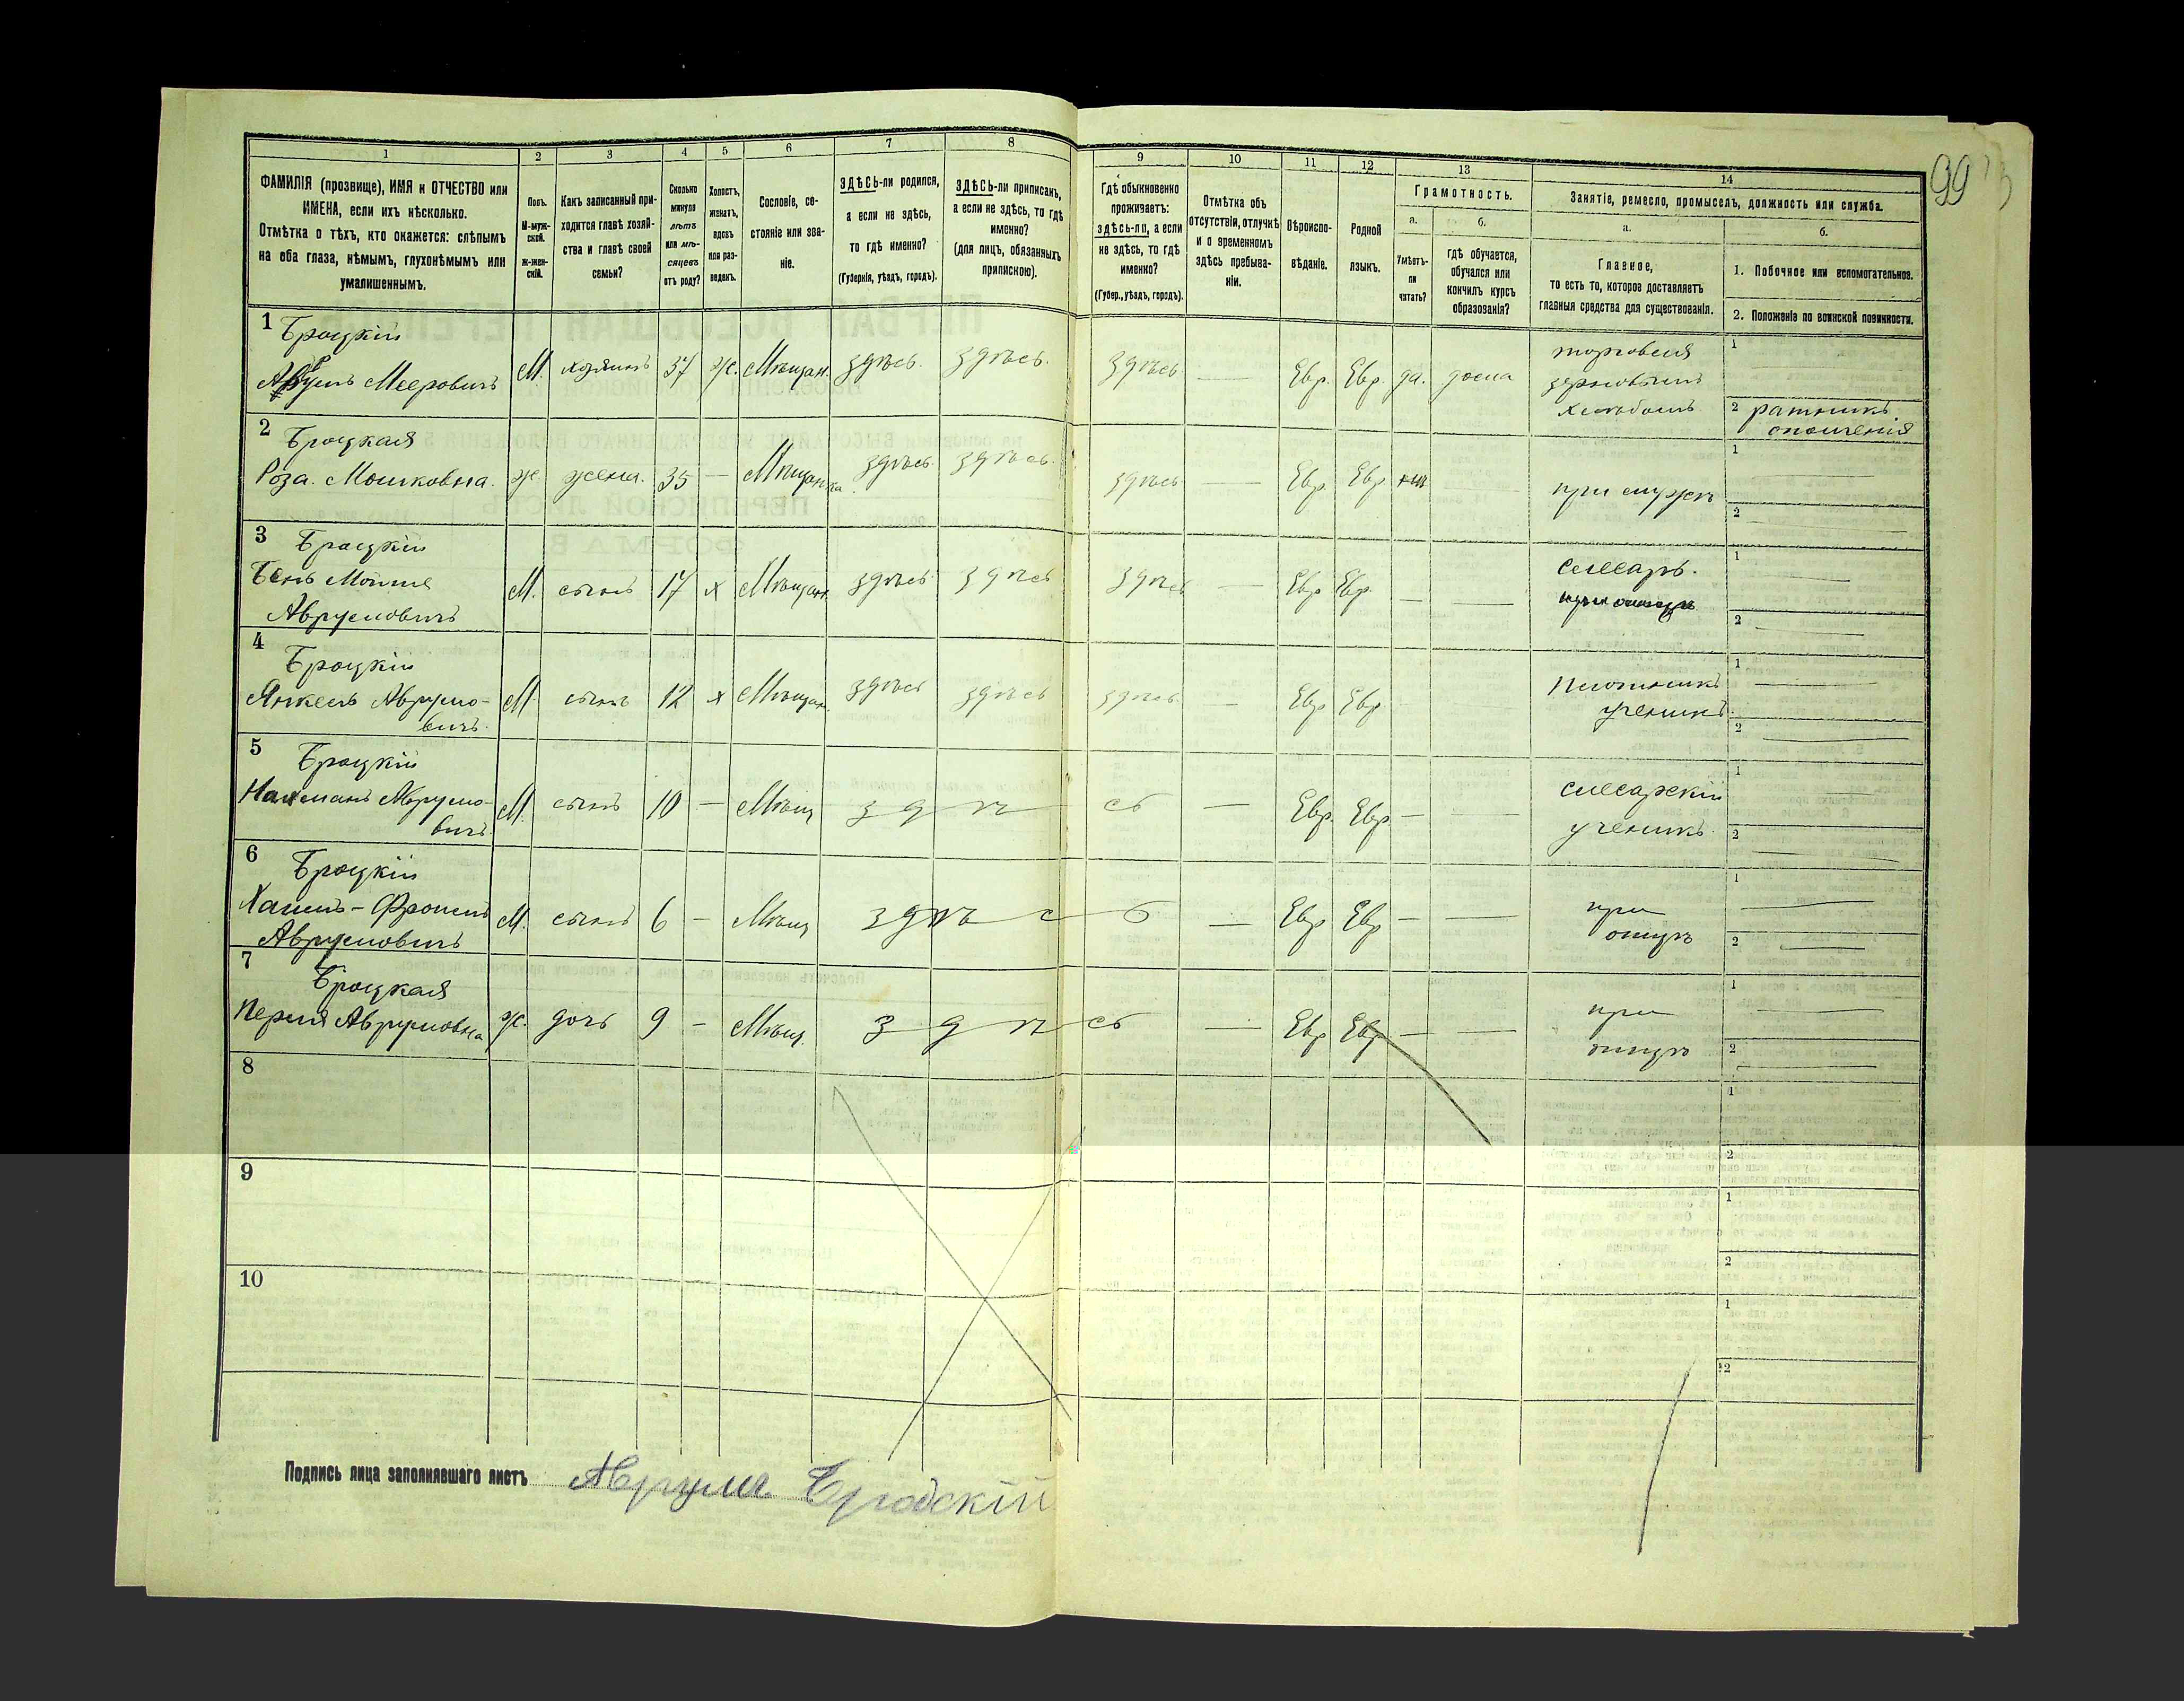 99
1 2 3 4 5 6 7 8 9 10 11 12 13 14
ФАМИЛІЯ (прозвище), ИМЯ и ОТЧЕСТВО или
ИМЕНА, если ихъ нѣсколько.
Отмѣтка о тѣхъ, кто окажется: слѣпымъ
на оба глаза, нѣмымъ, глухонѣмымъ или
умалишеннымъ.
Полъ.
М-муж-
ской.
ж-жен-
скій.
Какъ записанный при-
ходится главѣ хозяй-
ства и главѣ своей
семьи?
Сколько
минуло
лѣтъ
или мѣ-
сяцевъ
отъ роду?
Холостъ,
женатъ,
вдовъ
или раз-
веденъ.
Сословіе, со-
стояніе или зва-
ніе.
ЗДѢСЬ-ли родился,
а если не здѣсь,
то гдѣ именно?
(Губернія, уѣздъ, городъ).
ЗДѢСЬ-ли приписанъ,
а если не здѣсь, то гдѣ
именно?
(для лицъ, обязанныхъ
припискою).
Гдѣ обыкновенно
проживаетъ:
здѣсь-ли, а если
не здѣсь, то гдѣ
именно?
(Губер., уѣздъ, городъ).
Отмѣтка объ
отсутствіи, отлучкѣ
и о временномъ
здѣсь пребыва-
ніи.
Вѣроиспо-
вѣданіе.
Родной
языкъ.
Грамотность.
а.
Умѣетъ-
ли
читать?
б.
гдѣ обучается,
обучался или
кончилъ курсъ
образованія?
Занятіе, ремесло, промыселъ, должность или служба.
а.
Главное,
то есть то, которое доставляетъ
главныя средства для существованія.
б.
1. Побочное или вспомогательное.
2. Положеніе по воинской повинности.
1 Броцкій
Аврумъ Мееровичъ М. хозяинъ 37 ж. Мѣщан. здѣсь. здѣсь. здѣсь — Евр. Евр. да. дома
торговля
зерновымъ
хлѣбомъ
1
2 ратникъ
ополченія
2 Броцкая
Роза Мошковна. ж жена. 35 — Мѣщанка здѣсь. здѣсь. здѣсь — Евр. Евр. — при мужѣ
1
2
3 Броцкій
Бенъ Мойше
Аврумовичъ М. сынъ 17 х Мѣщан. здѣсь здѣсь здѣсь — Евр Евр. — —
слесарь.
1
2
4 Броцкій
Янкель Аврумо-
вичъ. М. сынъ 12 х Мѣщан. здѣсь здѣсь здѣсь. — Евр Евр.
Плотникъ
ученикъ.
1
2
5 Броцкій
Нахманъ Аврумо-
вичъ. М. сынъ 10 — Мѣщ здѣсь — Евр. Евр. — —
слесарскій
ученикъ.
1
2
6 Броцкій
Хаимъ-Фроимъ
Аврумовичъ М. сынъ 6 — Мѣщ здѣсь — Евр Евр — —
при
отцѣ
1
2
7 Броцкая
Перля Аврумовна ж. дочь 9 — Мѣщ. здѣсь — Евр Евр — —
при
отцѣ
1
2
8
1
2
9
1
2
10
1
2
Подпись лица заполнявшаго листъ Аврумъ Бродскій